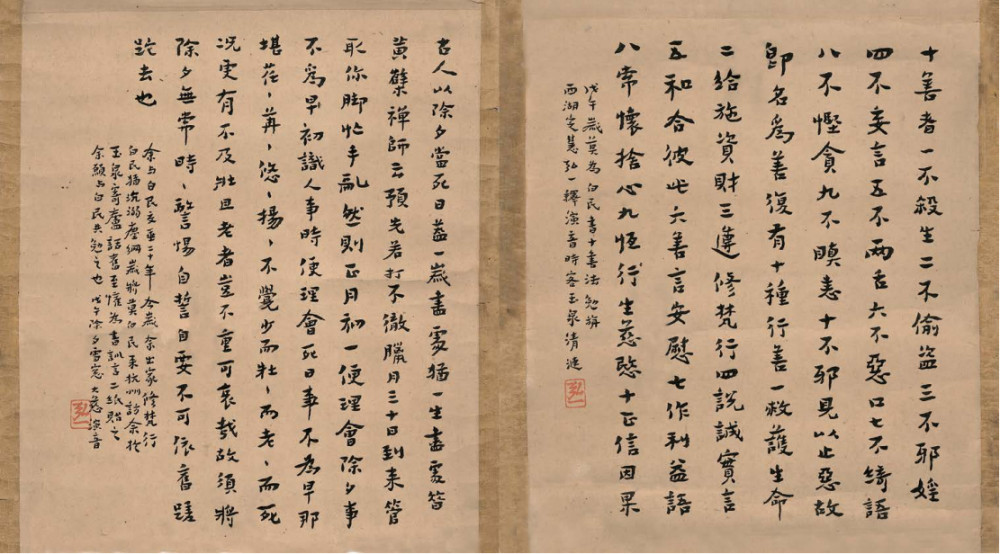 十善者一不殺生二不偷盜三不邪婬
四不妄言五不兩舌六不惡口七不綺語
八不慳貪九不瞋恚十不邪見以止惡故
即名爲善復有十種行善一救護生命
二給施資財三遵修梵行四說誠實言
五和合彼此六善言安慰七作利益語
八常懷捨心九恆行生慈愍十正信因果
戊午歲莫為白民書十善法勉旃
西湖定慧弘一釋演音時客玉泉清漣
弘一
古人以除夕當死日蓋一歲盡處猶一生盡處昔
黃檗禪師云預先若打不徹臘月三十日到來管
取你脚忙手亂然則正月初一便理會除夕事
不爲早初識人事時便理會死日事不為早那
堪荏、苒、悠、揚、不覺少而壯、而老、而死
況更有不及壯且老者豈不重可哀哉故須將
除夕無常時、警惕自誓自要不可依舊蹉
跎去也
余与白民交垂二十年今歲余出家修梵行
白民猶沉溺塵網歲將莫白民來杭州訪余於
玉泉寄廬話舊至懽為書訓言二紙貽之
余願与白民共勉之也戊午除夕雪窓大慈演音
弘一